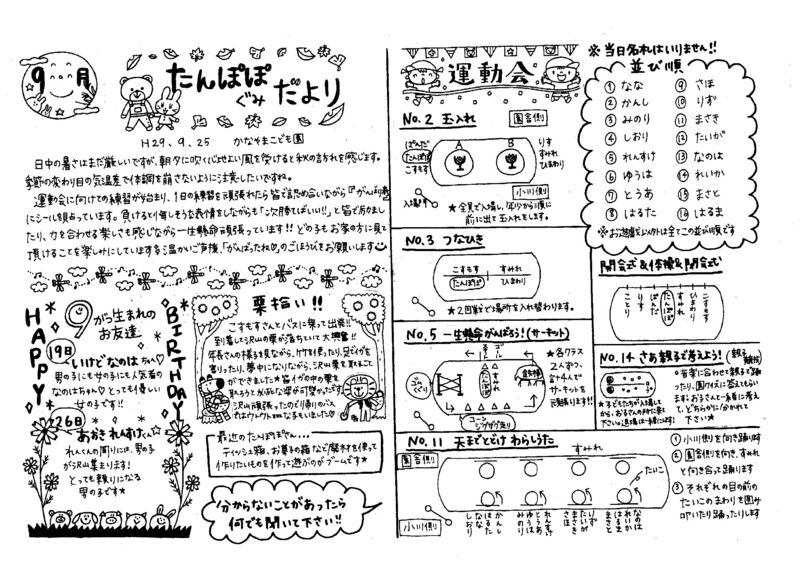 9月
たんぽぽぐみだより
H29.9.25 かなやまこども園
日中の暑さはまだ厳しいですが、朝夕に吹く心地よい風を受けると秋の訪れを感じます。
季節の変わり目の気温差で体調を崩さないように注意したいですね。
運動会に向けての練習が始まり、1日の練習を頑張れたら皆で認め合いながら『がんばり表』
にシールを貼っています。負けると悔しそうな表情をしながらも「次勝てばいい!!」と皆で励まし
たり、力を合わせる楽しさも感じながら一生懸命頑張っています!!どの子もお家の方に見て
頂けることを楽しみにしています
温かいご声援、「がんばったね」のごほうびをお願いします
HAPPY
BIRTHDAY
9月生まれの
お友達
19日
いけどなのはちゃん
男の子にも女の子にも人気者の
なのはちゃん とっても優しい
女の子です!!
26日
あおき れんすけくん
れんくんの周りには、男の子
が沢山集まります!
とっても頼りになる
男の子です★
栗拾い!!
こすもすさんとバスに乗って出発!!
到着して沢山の栗が落ちていて大興奮!!
年長さんの様子を見ながら、
夢中になりながら、沢山栗を取ること
ができました
沢山頑張ったので帰りのバス
最近のたんぽぽさん…
ティッシュ箱、お菓子の箱など廃材を使って
作りたいものを作って遊ぶのがブームです★
分からないことがあったら
何でも聞いて下さい!!
運動会
No.2 玉入れ
園舎側
ぱんだ
たんぽぽ
こすもす
A
B
りす
すみれ
ひまわり
入場門
小川側
★全員で入場し、年少から順に
前に出て玉入れをします。
No.3 つなひき
こすもす
すみれ
たんぽぽ
ひまわり
★2回戦で場所を入れ替わります。
No.5 一生懸命がんばろう!(サーキット)
ゴール
コーン
ジグザグ走り
★各クラス
2人ずつ、
計4人で
サーキットを
No.11 天までとどけ わらしうた
園舎側
すみれ
たいこ
小川側
① 小川側を向き踊ります
② 園舎側を向き、すみれ
と向き合って踊ります
③ それぞれの目の前の
たいこのまわりを囲み
叩いたり踊ったりします
※当日名札はいりません!!
並び順
① なな
② かんし
③ みのり
④ しおり
⑤ れんすけ
⑥ ゆうは
⑦ とうあ
⑧ はるた
⑨ さほ
⑩ りず
⑪ まさき
⑫ たいが
⑬ なのは
⑭ れいか
⑮ まさと
⑯ はるま
※お遊戯以外は全てこの並び順です
開会式&体操&閉会式
ことり
りす
ぱんだ
たんぽぽ
すみれ
ひまわり
こすもす
No.14 さあ親子で考えよう!(親子競技)
◎音楽に合わせて親子で踊っ
たり、園クイズに答えてもらい
ます。お子さんと一緒に考え
て、どちらかに分かれて
下さい★